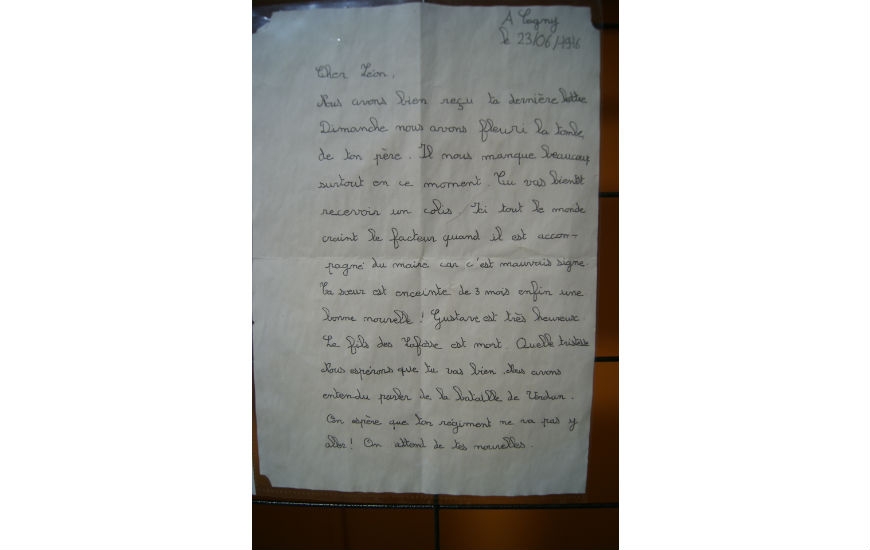 A Cagny
le 23/06/1916
Cher Léon,
Nous avons bien reçu ta dernière lettre
Dimanche nous avons fleuri la tombe
de ton père. Il nous manque beaucoup
surtout en ce moment. Tu vas bientôt
recevoir un colis. Ici tout le monde
craint le facteur quand il est accom-
pagné du maire car c'est mauvais signe.
Ta sœur est enceinte de 3 mois enfin une
bonne nouvelle ! Gustave est très heureux
Le fils des est mort. Quelle tristesse
Nous espérons que tu vas bien. Nous avons
entendu parler de la bataille de Verdun.
On espère que ton régiment ne va pas y
aller ! On attend de tes nouvelles.